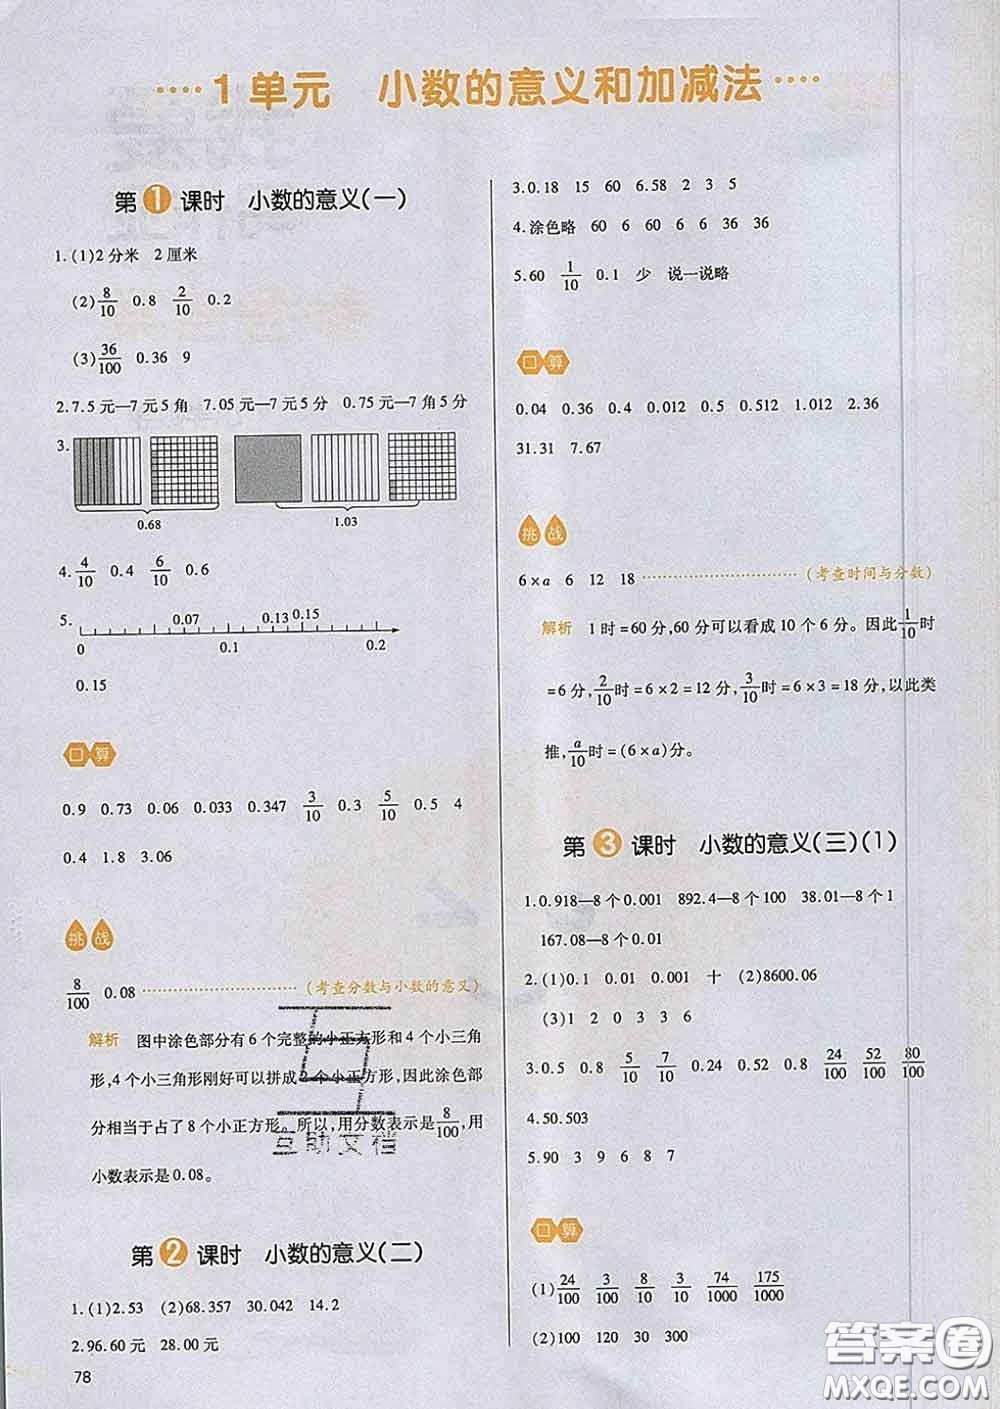 1单元 小数的意义和加减法
第1课时 小数的意义(一)
1.(1)2分米 2厘米
(2)8/10 0.8 2/10 0.2
(3)36/100 0.36 9
2.7.5元—7元5角 7.05元—7元5分 0.75元—7角5分
3.
0.68 1.03
4.4/10 0.4 6/10 0.6
5.
0.07 0.13 0.15
0 0.1 0.2
0.15
口算
0.9 0.73 0.06 0.033 0.347 3/10 0.3 5/10 0.5 4
0.4 1.8 3.06
挑战
8/100 0.08 (考查分数与小数的意义)
解析 图中涂色部分有6个完整的小正方形和4个小三角
形,4个小三角形刚好可以拼成2个小正方形,因此涂色部
分相当于占了8个小正方形。所以,用分数表示是8/100,用
小数表示是0.08。
互助文档
第2课时 小数的意义(二)
1.(1)2.53 (2)68.357 30.042 14.2
2.96.60元 28.00元
78
3.0.18 15 60 6.58 2 3 5
4.涂色略 60 6 60 6 6 36 36
5.60 1/10 0.1 少 说一说略
口算
0.04 0.36 0.4 0.012 0.5 0.512 1.012 2.36
31.31 7.67
挑战
6×a 6 12 18 (考查时间与分数)
解析 1时=60分,60分可以看成10个6分。因此1/10时
=6分,2/10时=6×2=12分,3/10时=6×3=18分,以此类
推,a/10时=(6×a)分。
第3课时 小数的意义(三)(1)
1.0.918—8个0.001 892.4—8个100 38.01—8个1
167.08—8个0.01
2.(1)0.1 0.01 0.001 十 (2)8600.06
(3)1 2 0 3 3 3
3.0.5 0.8 5/10 7/10 0.24 0.52 0.8 24/100 52/100 80/100
4.50.503
5.90 3 9 6 8 7
口算
(1)24/100 3/100 8/10 3/10 74/1000 175/1000
(2)100 120 30 300
答案圈
MXQE.COM